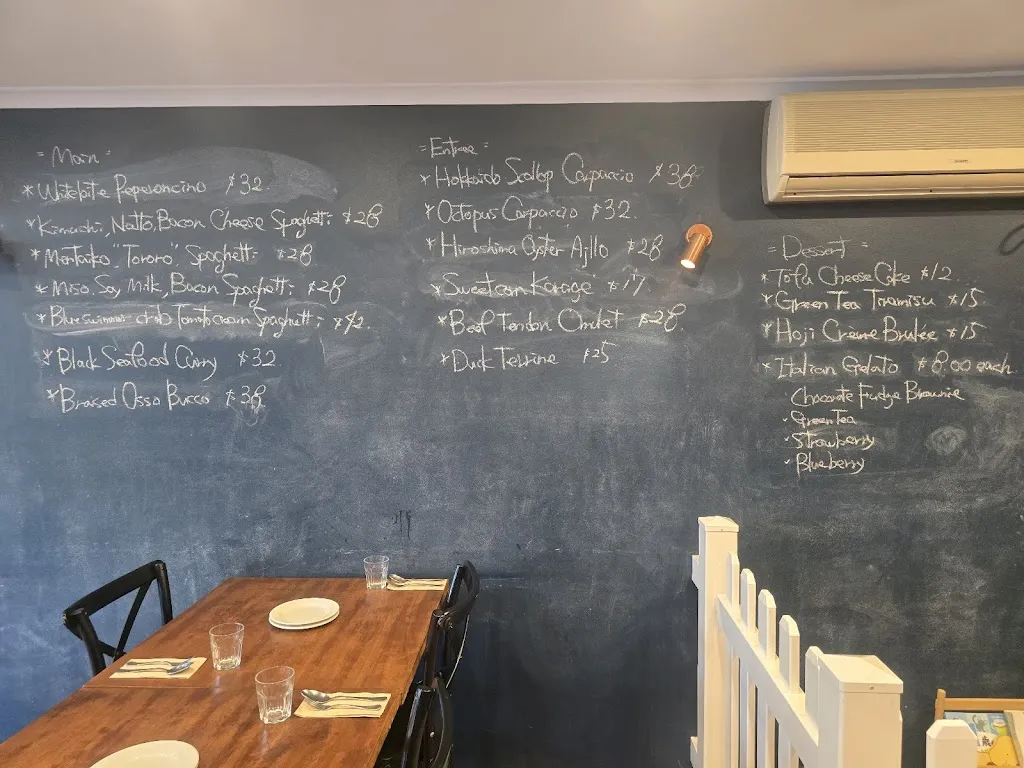 = Main =
* Whitebite Peperoncino $32
* Kimuchi, Natto, Bacon Cheese Spaghetti $28
* Mentaiko "Tororo", Spaghetti $28
* Miso Soy Milk, Bacon Spaghetti $28
* Blue swimmer crab Tomato cream Spaghetti
* Black Seafood Curry $32
* Braised Osso Bucco $38
= Entree =
* Hokkaido Scallop Carpaccio $38
* Octopus Carpaccio $32
* Hiroshima Oyster Ajillo $28
* Sweetcorn Karage $17
* Beef Tendon Omlet $28
* Duck Terrine $25
= Dessert =
* Tofu Cheese Cake $12
* Green Tea Tiramisu $15
* Hoji Creme Brulee $15
* Italian Gelato $8.00 each
Chocorate Fudge Brownie
Green Tea
Strawberry
Blueberry